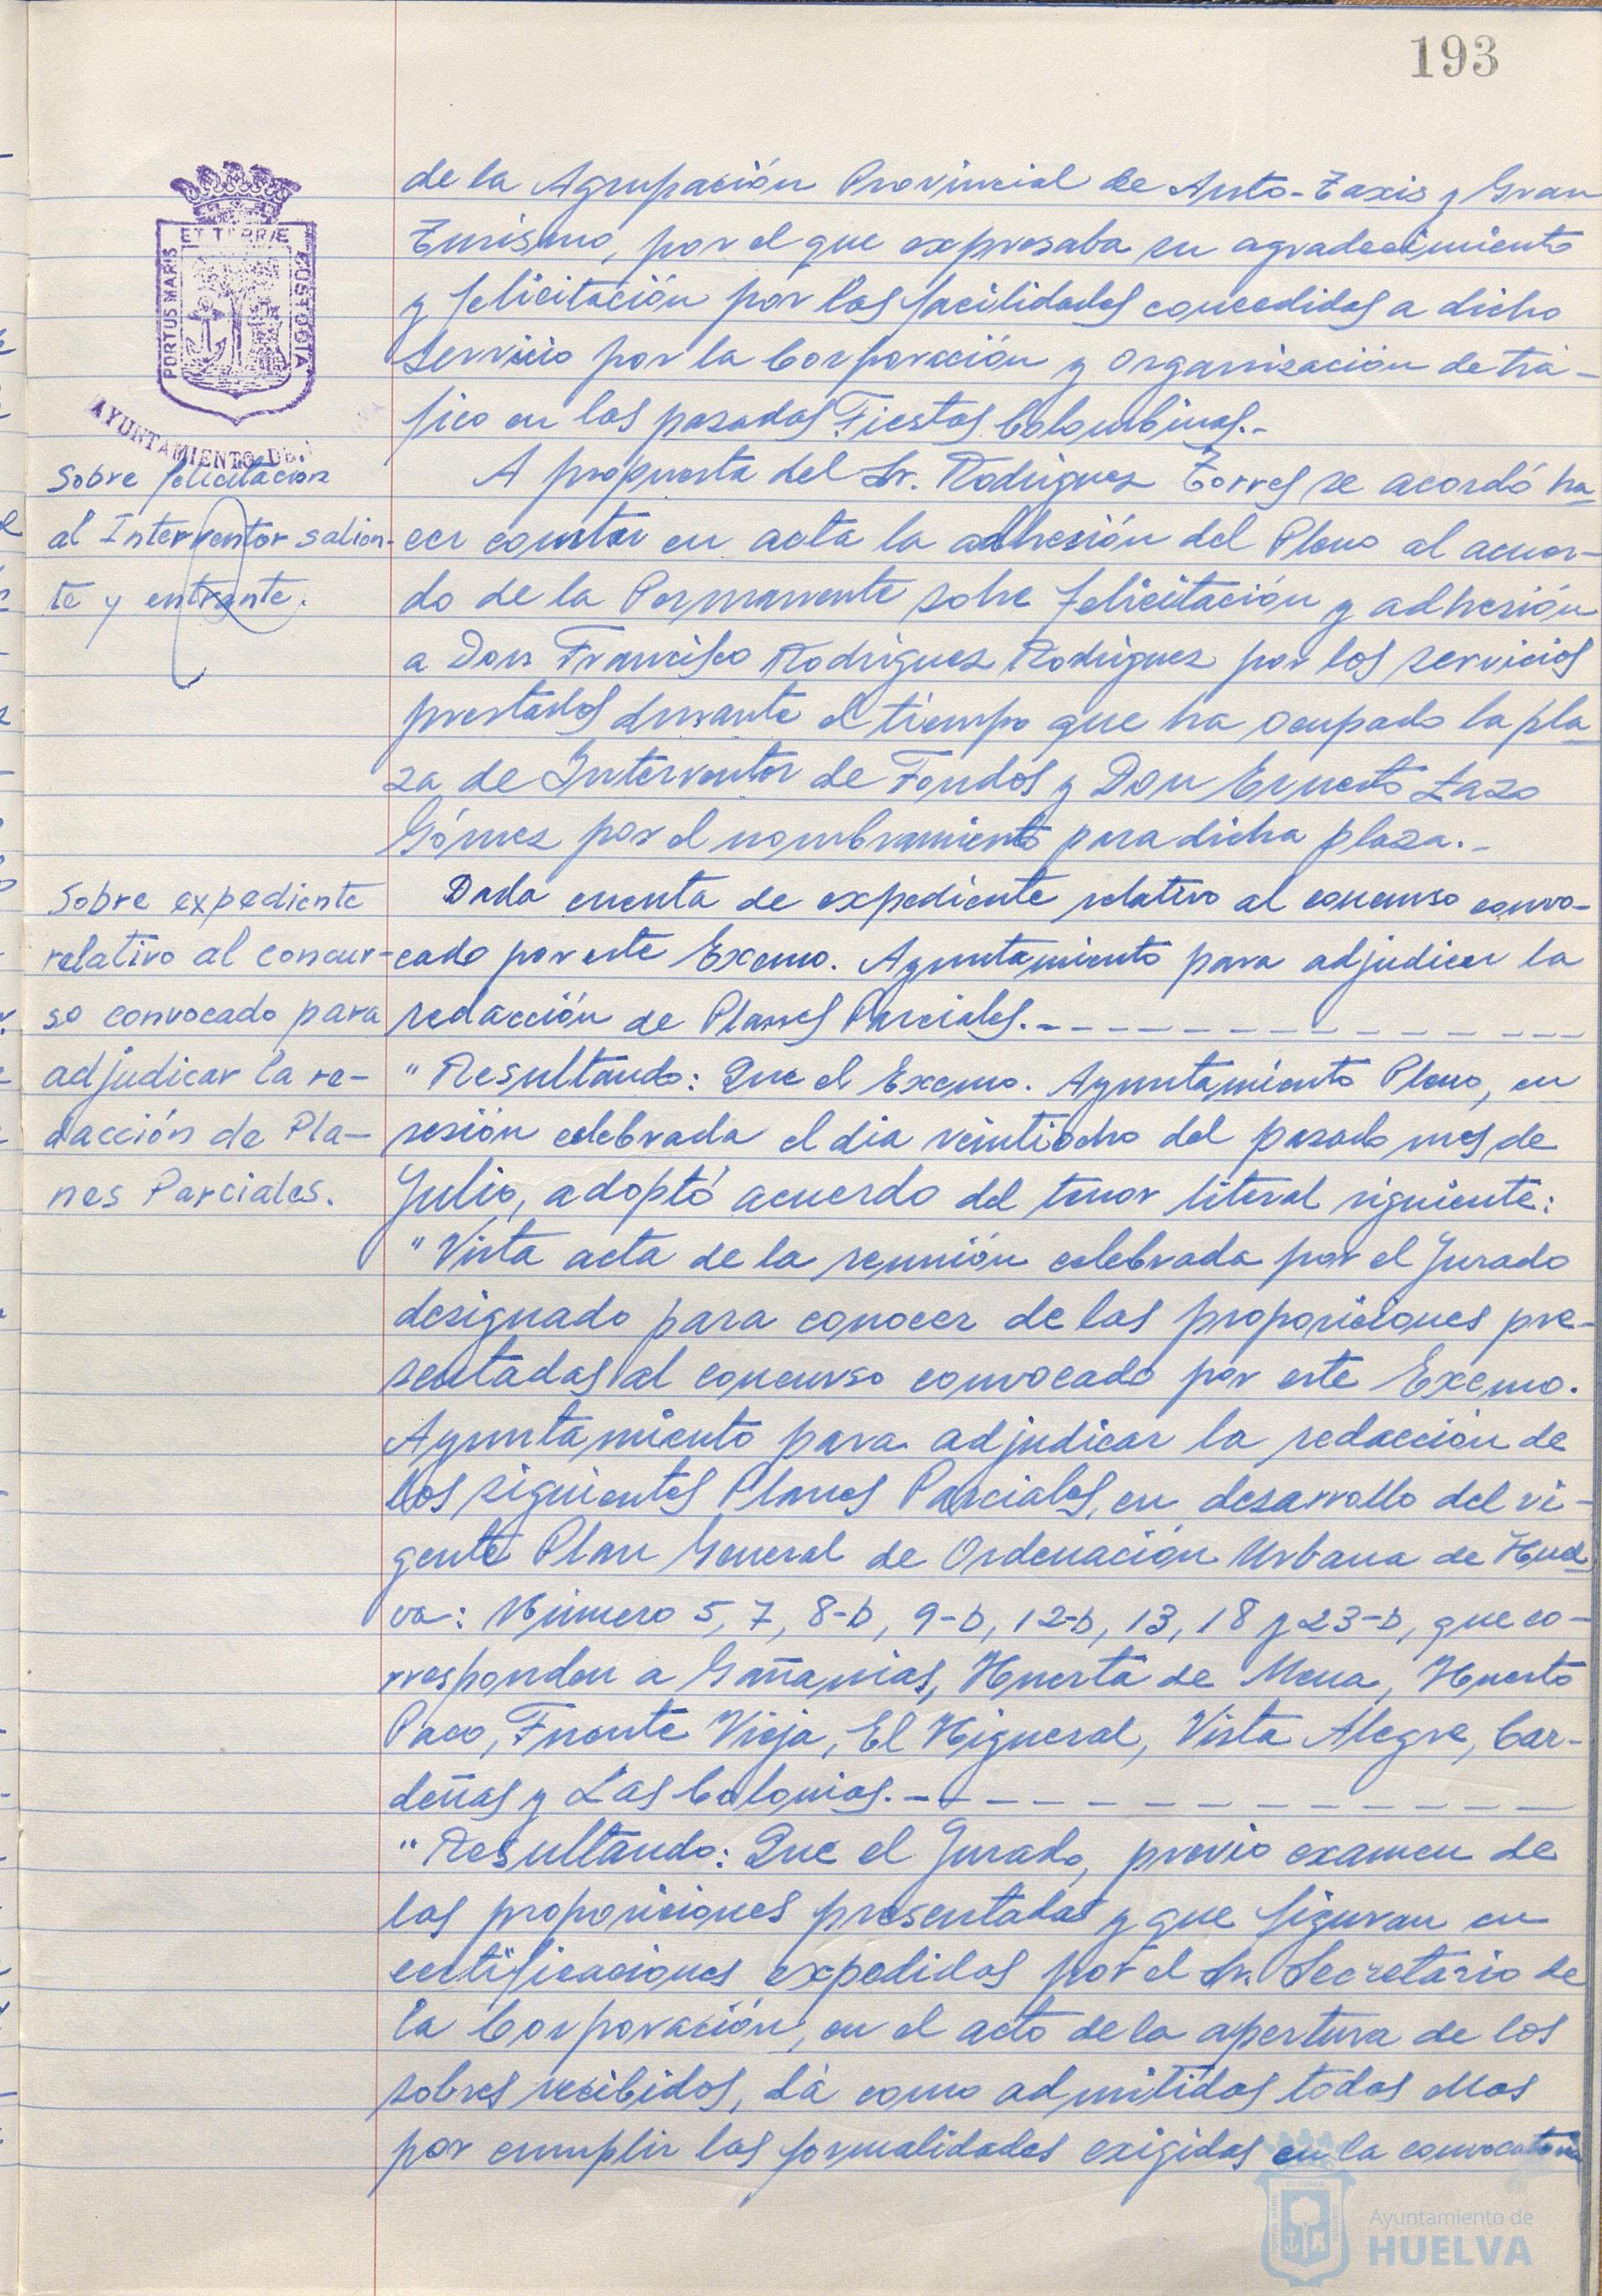 193
de la Agrupación Provincial de Auto-Taxis y Gran
Turismo, por el que expresaba su agradecimiento
y felicitación por las facilidades concedidas a dicho
servicio por la Corporación y organización de trá-
fico en las pasadas Fiestas Colombinas.-
ET TERRÆ
PORTUS MARIS
CUSTODIA
AYUNTAMIENTO DE
Sobre felicitacion
al Interventor salien-
te y entrante.
A propuesta del Sr. Rodríguez Torres se acordó ha-
cer constar en acta la adhesión del Pleno al acuer-
do de la Permanente sobre felicitación y adhesión
a Don Francisco Rodríguez Rodríguez por los servicios
prestados durante el tiempo que ha ocupado la pla-
za de Interventor de Fondos y Don Ernesto Lazo
Gómez por el nombramiento para dicha plaza.-
Sobre expediente
relativo al concur-
so convocado para
adjudicar la re-
dacción de Pla-
nes Parciales.
Dada cuenta de expediente relativo al concurso convo-
cado por este Excmo. Ayuntamiento para adjudicar la
redacción de Planes Parciales.-
"Resultando: Que el Excmo. Ayuntamiento Pleno, en
sesión celebrada el dia veintiocho del pasado mes de
Julio, adoptó acuerdo del tenor literal siguiente:
"Vista acta de la reunión celebrada por el Jurado
designado para conocer de las proposiciones pre-
sentadas al concurso convocado por este Excmo.
Ayuntamiento para adjudicar la redacción de
los siguientes Planes Parciales, en desarrollo del vi-
gente Plan General de Ordenación Urbana de Huel-
va: Número 5, 7, 8-b, 9-b, 12-b, 13, 18 y 23-b, que co-
rresponden a Gañanias, Huerta de Mena, Huerto
Paco, Fuente Vieja, El Higueral, Vista Alegre, Car-
deñas y Las Colonias.-
"Resultando: Que el Jurado, previo examen de
las proposiciones presentadas y que figuran en
certificaciones expedidas por el Sr. Secretario de
la Corporación, en el acto de la apertura de los
sobres recibidos, dá como admitidas todas ellas
por cumplir las formalidades exigidas en la convocatoria
Ayuntamiento de
HUELVA